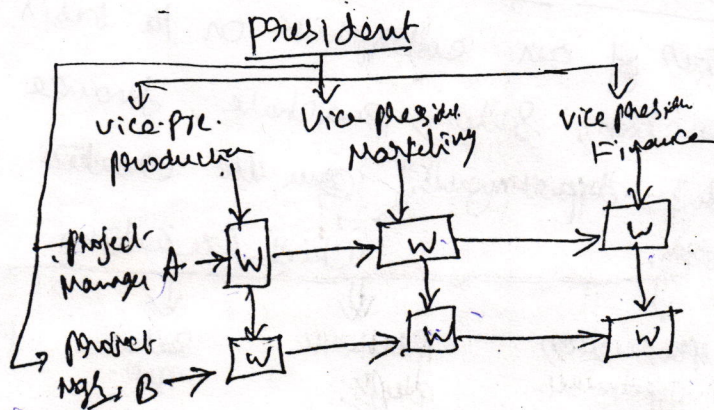 President
Vice-Pre. Production
Vice-President Marketing
Vice President Finance
Project Manager A
W
W
W
Project Mgr. B
W
W
W